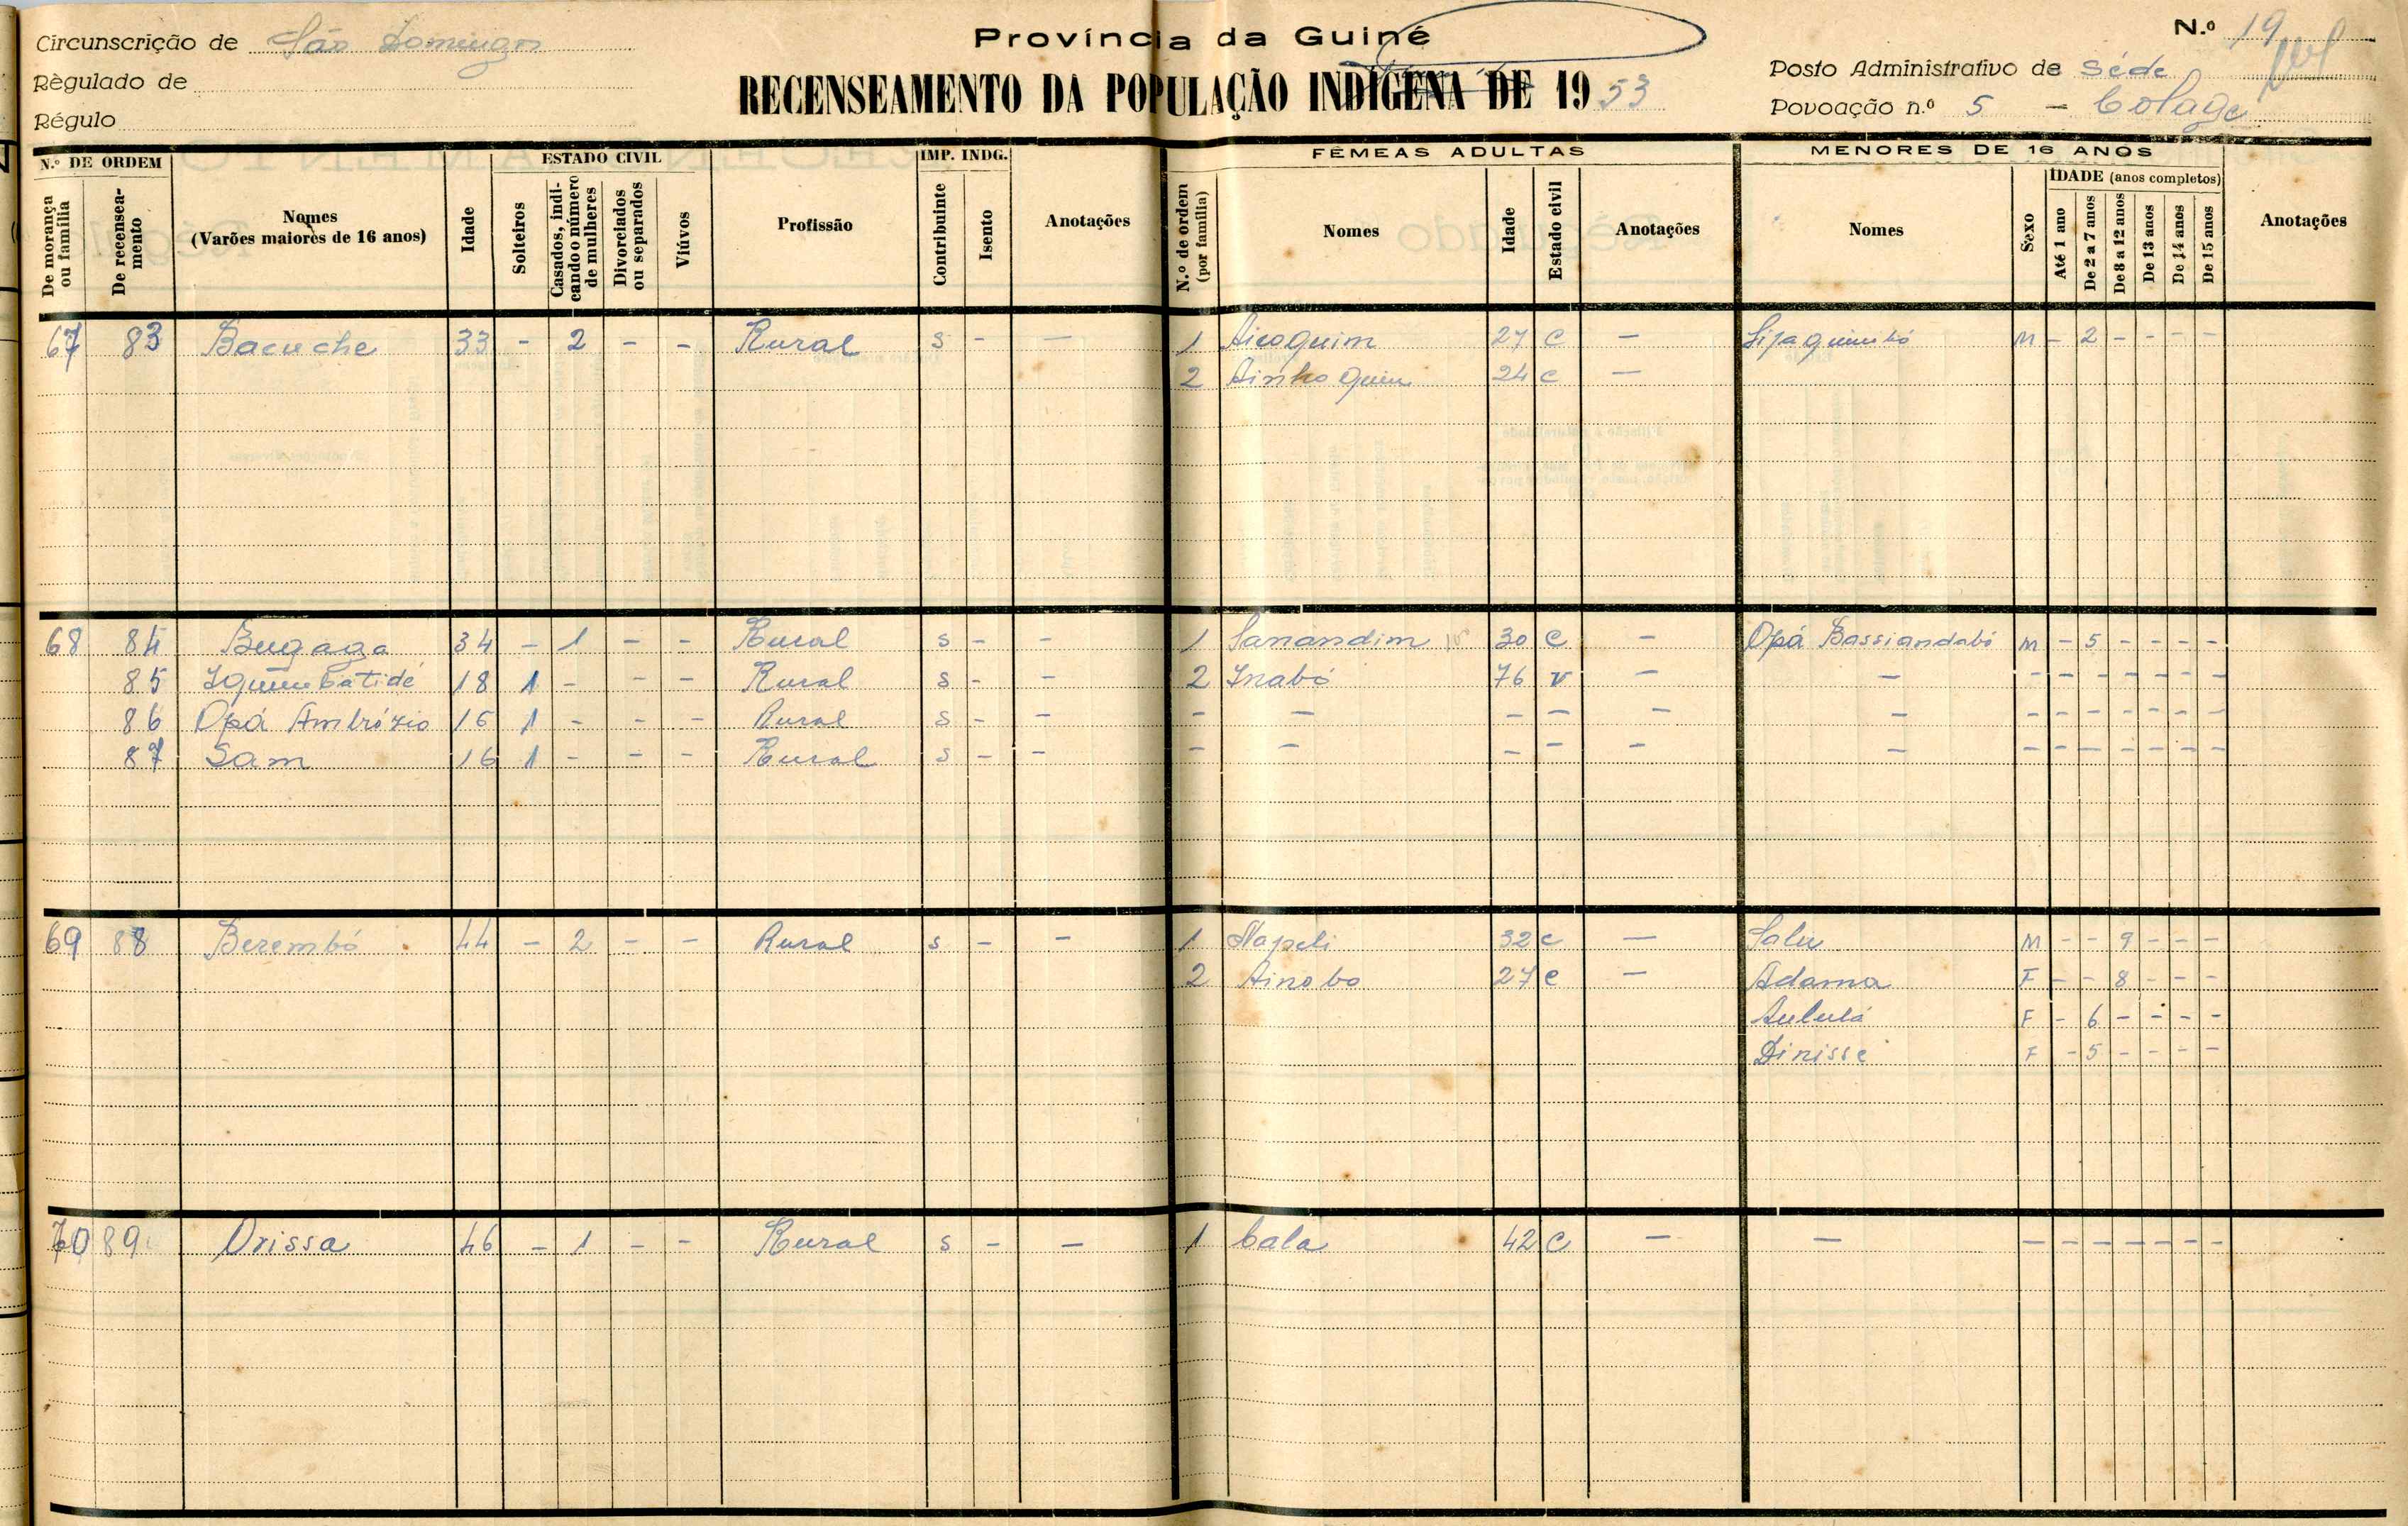 Circunscrição de São Domingos
Règulado de
Régulo
Província da Guiné
RECENSEAMENTO DA POPULAÇÃO INDÍGENA DE 1953
N.º 19
Posto Administrativo de Séde
Povoação n.º 5 - Colage
N.º DE ORDEM ESTADO CIVIL IMP. INDG. FÊMEAS ADULTAS MENORES DE 16 ANOS
De morança ou família De recenseamento Nomes (Varões maiores de 16 anos) Idade Solteiros Casados, indicando o número de mulheres Divorciados ou separados Viúvos Profissão Contribuinte Isento Anotações N.º de ordem (por família) Nomes Idade Estado civil Anotações Nomes Sexo IDADE (anos completos) Até 1 ano De 2 a 7 anos De 8 a 12 anos De 13 anos De 14 anos De 15 anos Anotações
67 83 Bacuche 33 - 2 - - Rural s - - 1 Aicoquim 27 C - Sijaquimbó M - 2 - - - -
2 Ainhoquim 24 c -
68 84 Bugaga 34 - 1 - - Rural s - - 1 Sanandim 30 C - Opá Bassiandabó M - 5 - - - -
85 18 1 - - - Rural s - - 2 Inabó 76 v - - - - - - - - -
86 Opá Ambrózio 16 1 - - - Rural s - - - - - - - - - - - - - - -
87 Sam 16 1 - - - Rural s - - - - - - - - - - - - - - -
69 88 Berembó 44 - 2 - - Rural s - - 1 Napeli 32 c - Salu M - - 9 - - -
2 Ainobo 27 e - Adama F - - 8 - - -
Aululá F - 6 - - - -
Dinisse F - 5 - - - -
70 89 Orissa 46 - 1 - - Rural s - - 1 Cala 42 C - - - - - - - - -